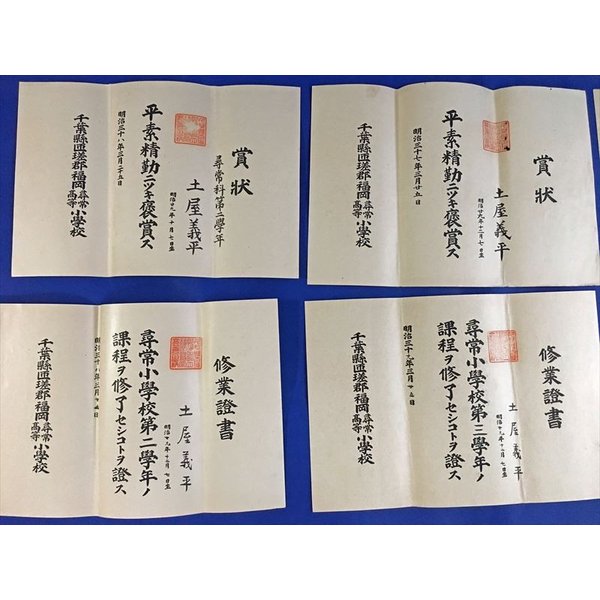 賞状
尋常科第二學年
土屋義平
明治廿九年十月七日生
平素精勤ニツキ褒賞ス
明治三十八年三月二十五日
千葉縣匝瑳郡福岡尋常高等小學校
賞状
土屋義平
明治廿九年十二月七日生
平素精勤ニツキ褒賞ス
明治三十七年三月廿五日
千葉縣匝瑳郡福岡尋常高等小學校
修業證書
土屋義平
尋常小學校第二學年ノ
課程ヲ修了セシコトヲ證ス
千葉縣匝瑳郡福岡尋常高等小學校
修業證書
土屋義平
尋常小學校第三學年ノ
課程ヲ修了セシコトヲ證ス
千葉縣匝瑳郡福岡尋常高等小學校